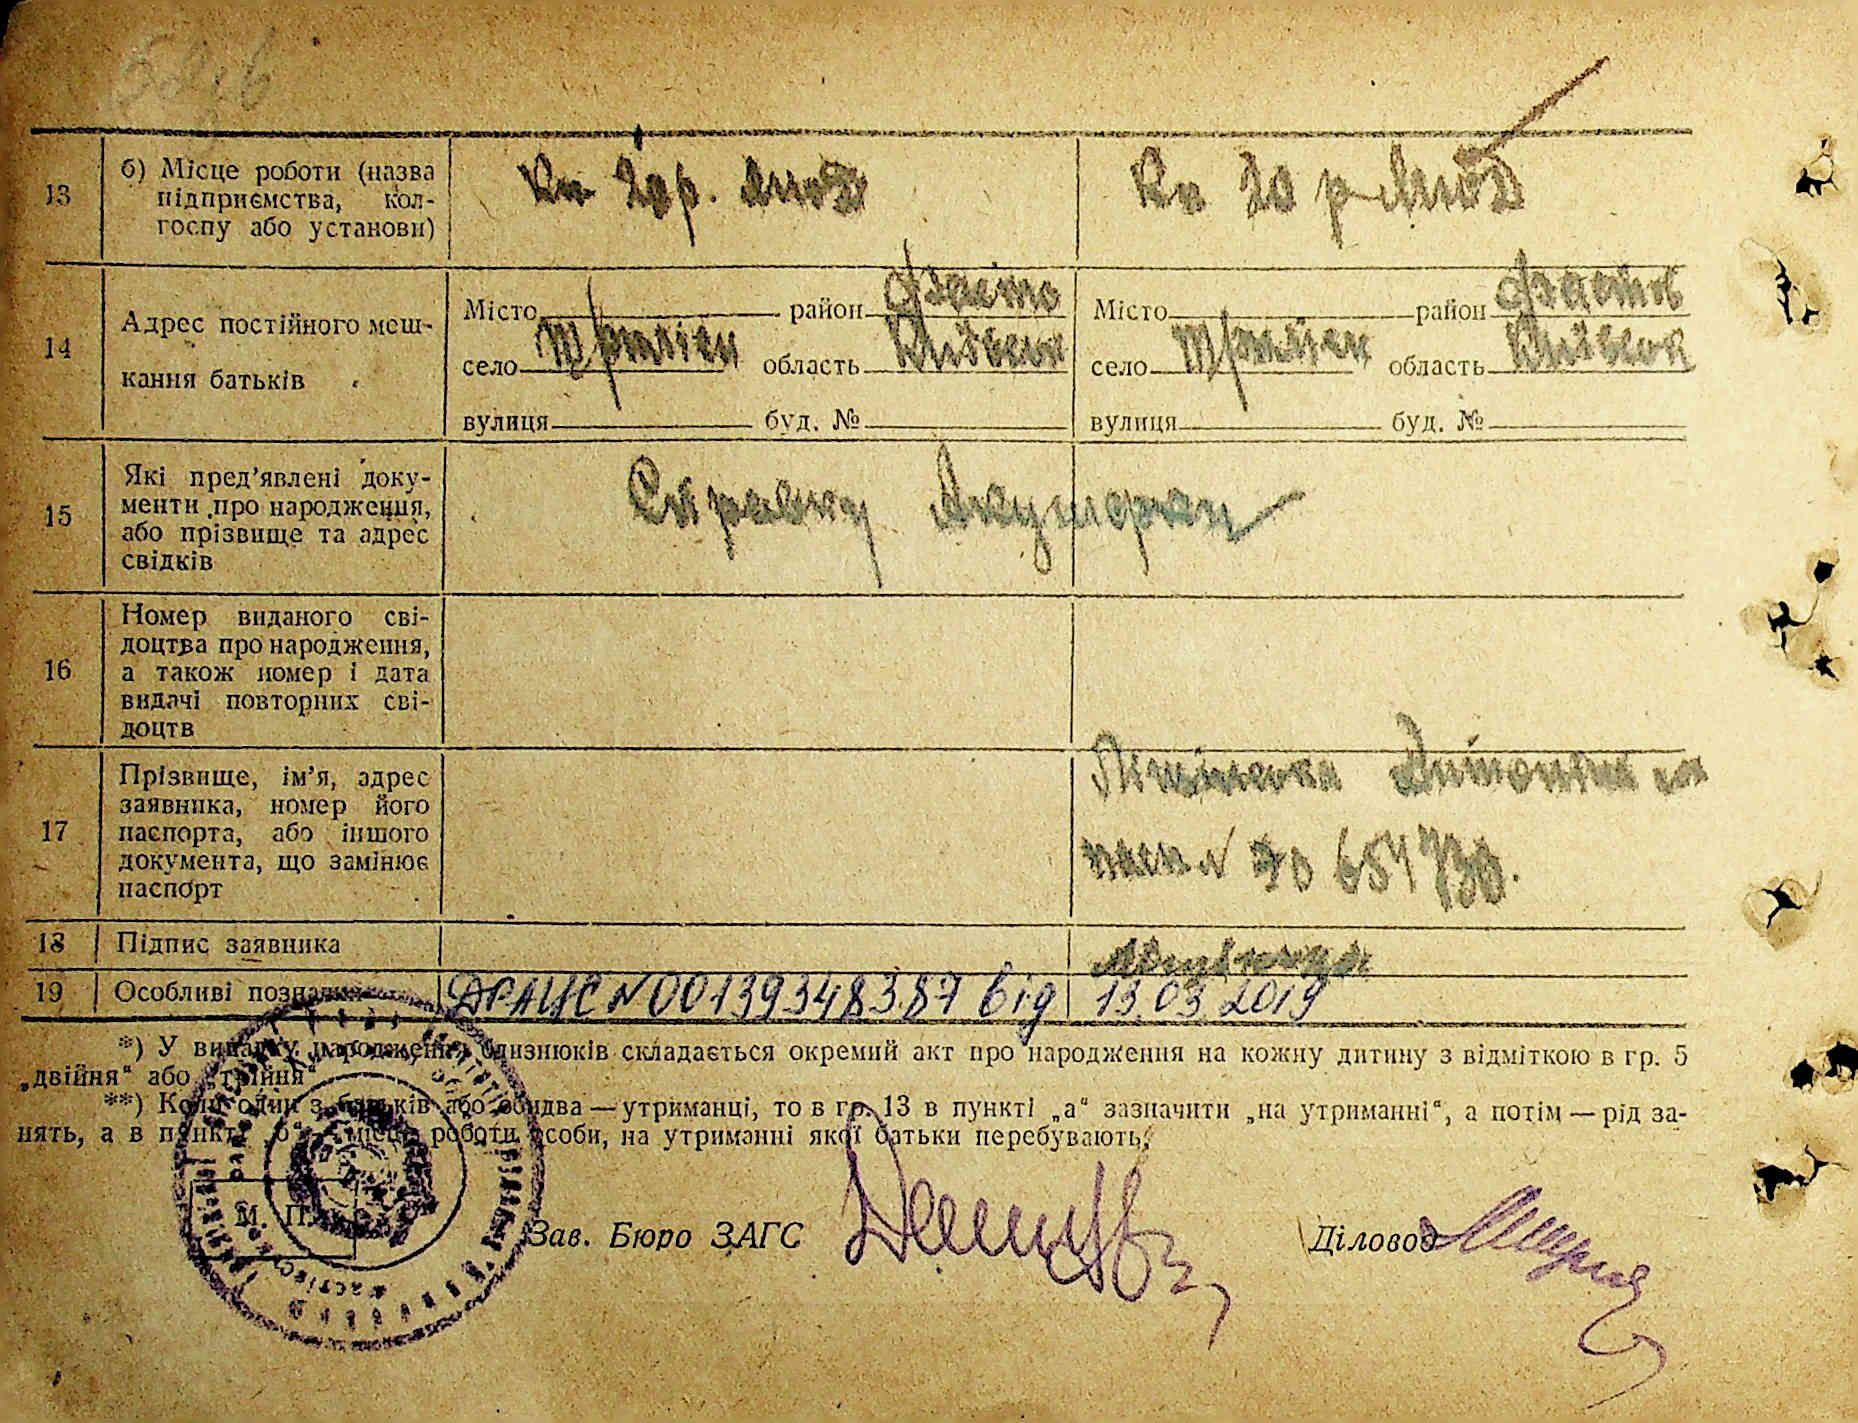 13 б) Місце роботи (назва
підприємства, кол-
госпу або установи)
Кп 20 р. Жовт
Кп 20 р Жовт
14 Адрес постійного меш-
кання батьків
Місто район Фасто
село область Київськ
вулиця буд. №
Місто район Фастов
село область Київськ
вулиця буд. №
15 Які пред’явлені доку-
менти про народження,
або прізвище та адрес
свідків
Справку Акушерки
16 Номер виданого сві-
доцтва про народження,
а також номер і дата
видачі повторних сві-
доцтв
17 Прізвище, ім’я, адрес
заявника, номер його
паспорта, або іншого
документа, що замінює
паспорт
18 Підпис заявника
19 Особливі познач
ДРАЦС № 00139348387 від 13.03.2019
*) У випадку народження близнюків складається окремий акт про народження на кожну дитину з відміткою в гр. 5
„двійня“ або „трійня“
**) Коли один з батьків або обидва — утриманці, то в гр. 13 в пункті „а“ зазначити „на утриманні“, а потім — рід за-
нять, а в пункті „б“ — місце роботи особи, на утриманні якої батьки перебувають.
М. П.
Зав. Бюро ЗАГС
Діловод